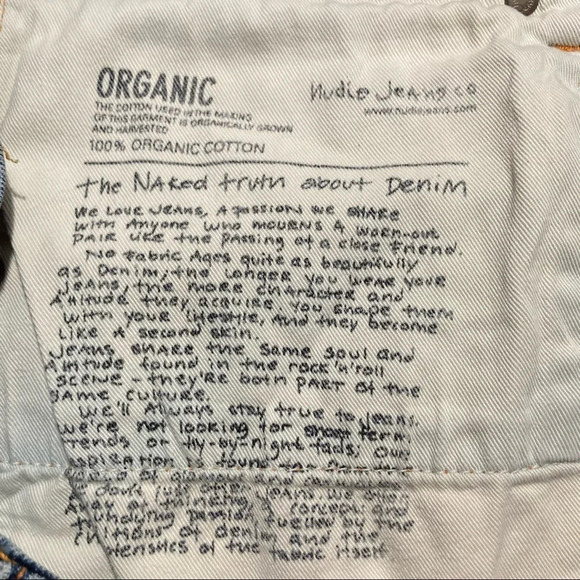 ORGANIC
THE COTTON USED IN THE MAKING
OF THIS GARMENT IS ORGANICALLY GROWN
AND HARVESTED
100% ORGANIC COTTON
Nudie Jeans co
www.nudiejeans.com
the Naked truth about Denim
We Love Jeans, A passion we share
with Anyone who mourns A worn-out
pair like the passing of a close friend.
No Fabric Ages quite as beautifully
as Denim, the longer you wear your
Jeans, the more character and
Attitude they acquire. You shape them
with your lifestyle, And they become
Like A second skin.
Jeans share the same soul and
Attitude found in the rock'n'roll
scene - they're both part of the
same culture.
We'll Always stay true to jeans.
We're not looking for short term
trends or fly-by-night fads; Our
inspiration is found
of glamour and
don't just offer Jeans. We offer
A way of thinking, A concept and
passion fuelled by the
traditions of denim and the
of the fabric itself